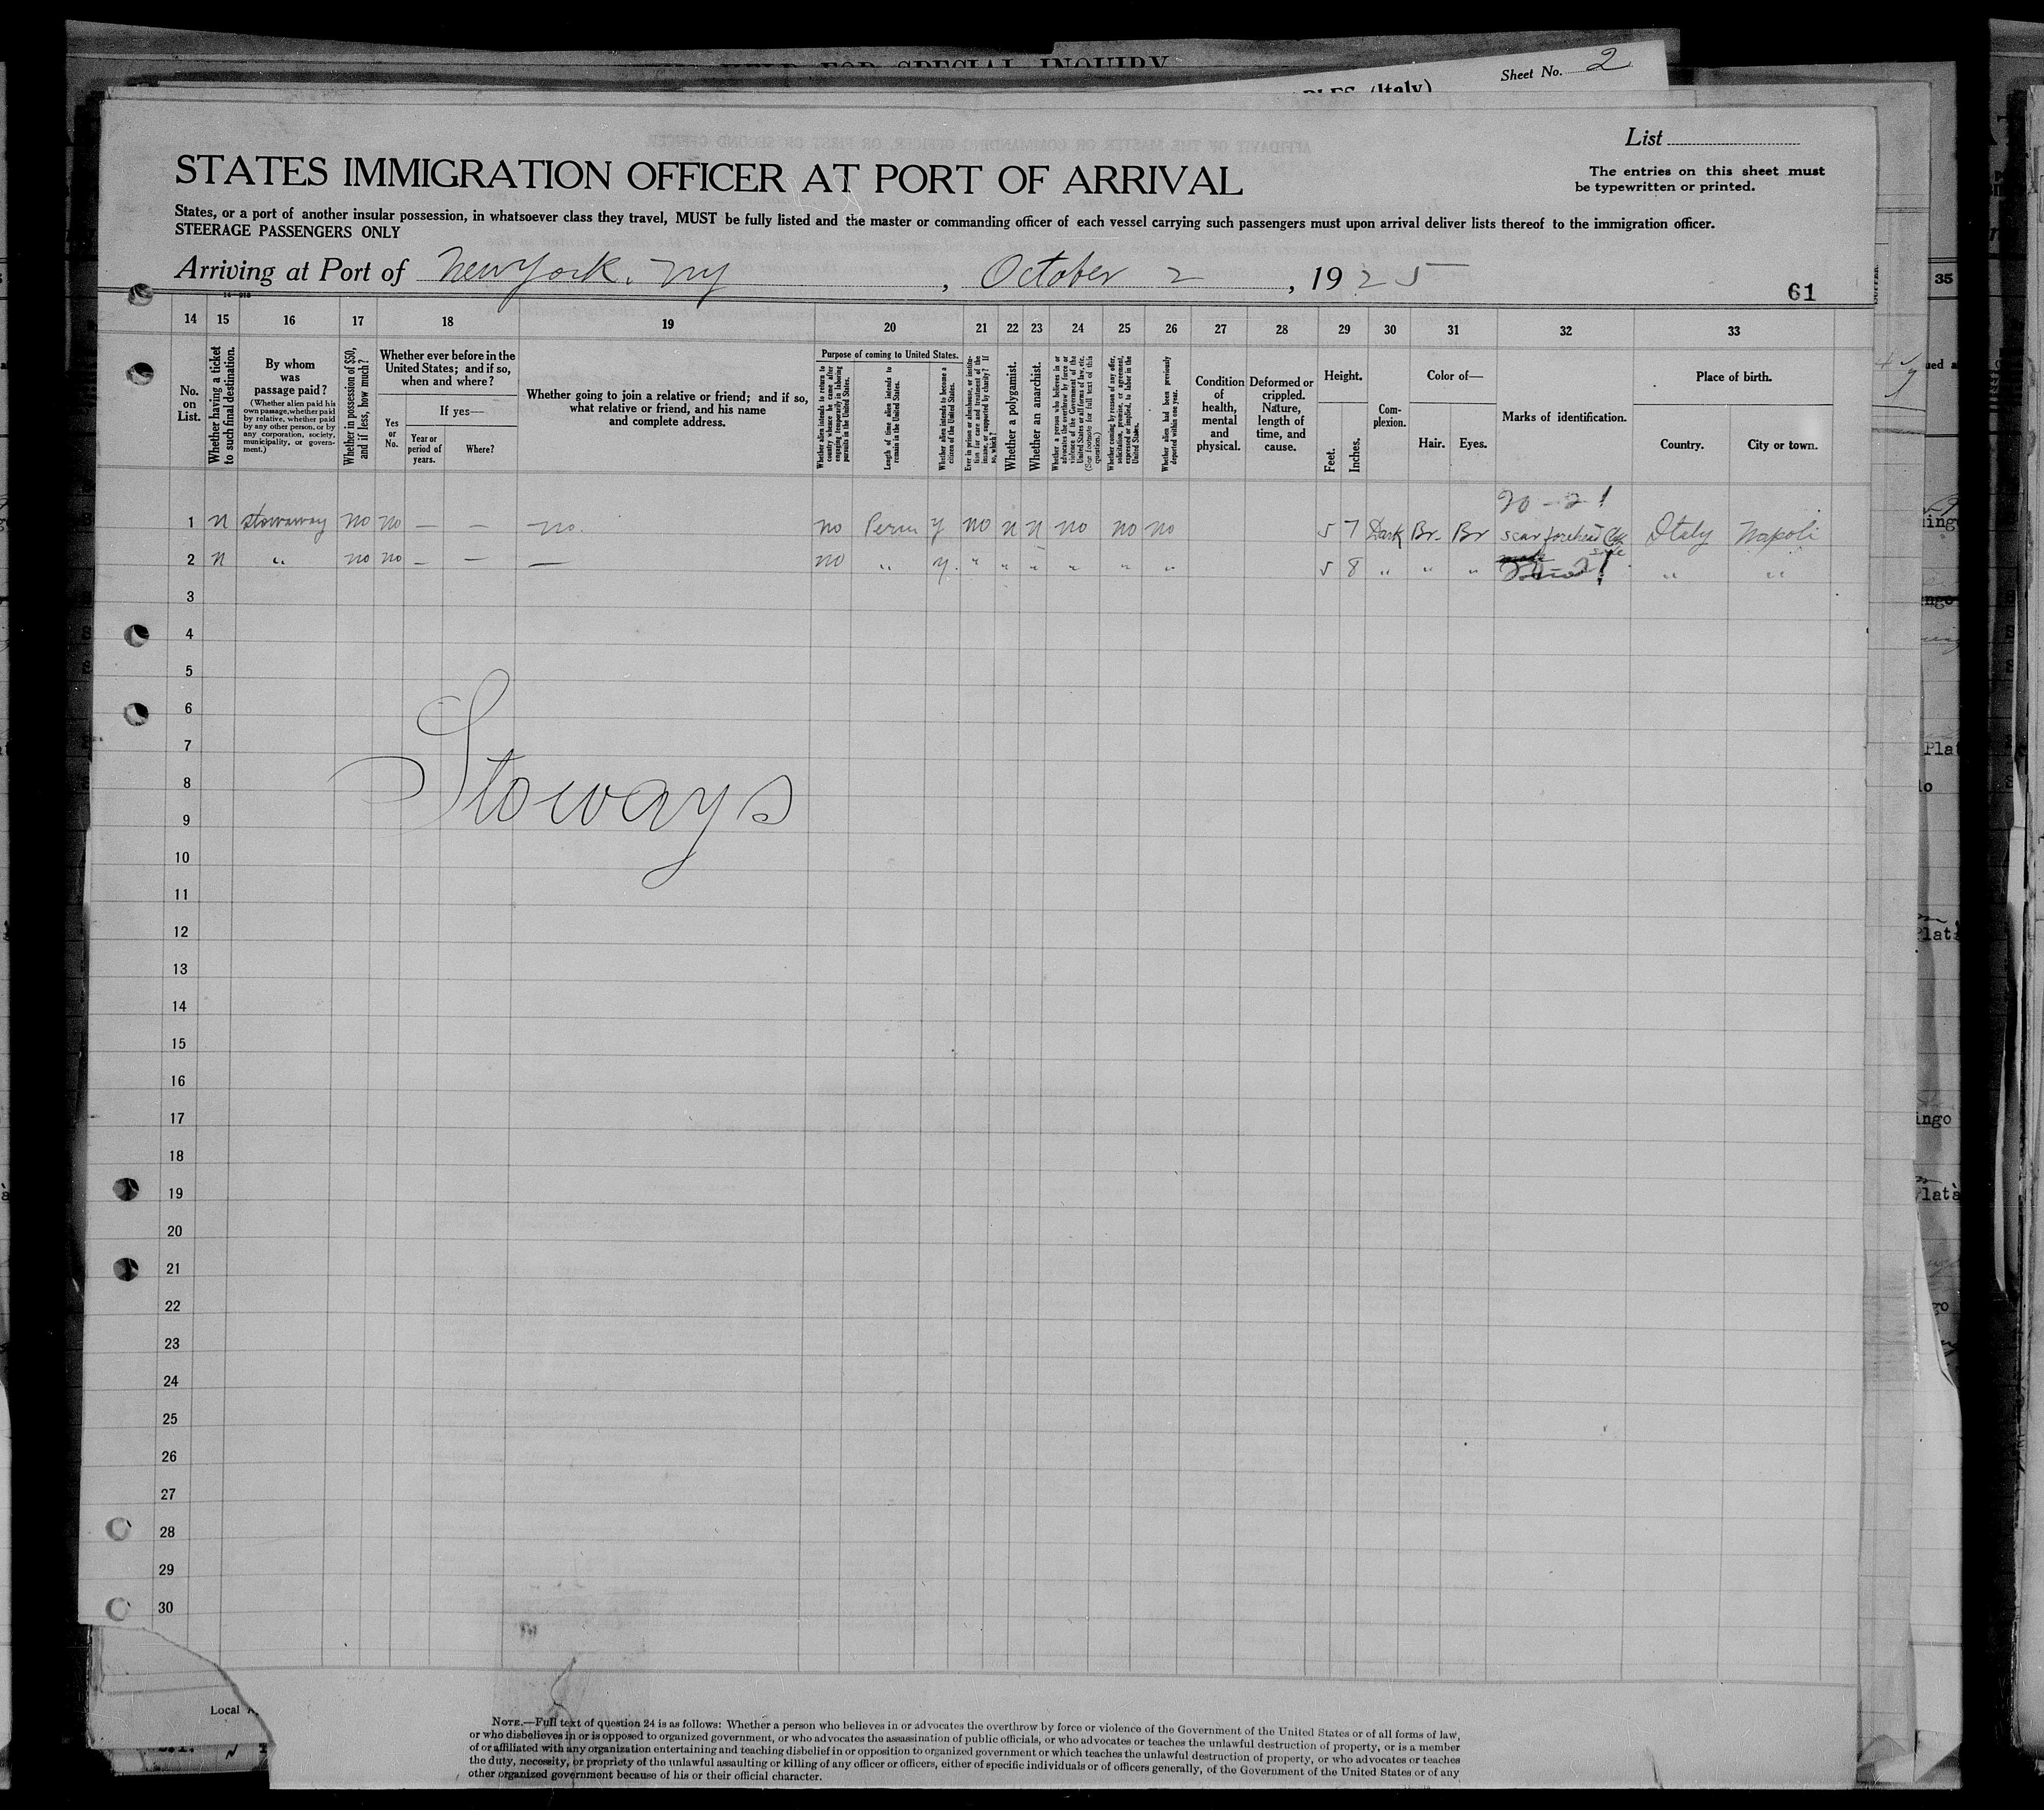 Sheet No. 2
List
STATES IMMIGRATION OFFICER AT PORT OF ARRIVAL
The entries on this sheet must
be typewritten or printed.
States, or a port of another insular possession, in whatsoever class they travel, MUST be fully listed and the master or commanding officer of each vessel carrying such passengers must upon arrival deliver lists thereof to the immigration officer.
STEERAGE PASSENGERS ONLY
Arriving at Port of New York. NY, October 2, 1925
61
14 15 16 17 18 19 20 21 22 23 24 25 26 27 28 29 30 31 32 33
No. on List.
Whether having a ticket to such final destination.
By whom was passage paid?
(Whether alien paid his own passage, whether paid by relative, whether paid by any other person, or by any corporation, society, municipality, or government.)
Whether in possession of $50, and if less, how much?
Whether ever before in the United States; and if so, when and where?
Yes or No.
If yes—
Year or period of years.
Where?
Whether going to join a relative or friend; and if so, what relative or friend, and his name and complete address.
Purpose of coming to United States.
Whether alien intends to return to country whence he came after engaging temporarily in laboring pursuits in the United States.
Length of time alien intends to remain in the United States.
Whether alien intends to become a citizen of the United States.
Ever in prison or almshouse, or institution for care and treatment of the insane, or supported by charity? If so, which?
Whether a polygamist.
Whether an anarchist.
Whether a person who believes in or advocates the overthrow by force or violence of the Government of the United States or all forms of law, etc. (See footnote for full text of this question.)
Whether coming by reason of any offer, solicitation, promise, or agreement, expressed or implied, to labor in the United States.
Whether alien had been previously deported within one year.
Condition of health, mental and physical.
Deformed or crippled. Nature, length of time, and cause.
Height.
Feet.
Inches.
Complexion.
Color of—
Hair.
Eyes.
Marks of identification.
Place of birth.
Country.
City or town.
20 - 2 !
1 n stowaway no no — — no. no Perm y no n n no no no 5 7 Dark Br. Br scar forehead side Italy Napoli
2 n " no no — — — no " y. " " " " " " 5 8 " " " " "
3
4
5
6
7
8
9
10
11
12
13
14
15
16
17
18
19
20
21
22
23
24
25
26
27
28
29
30
Stoways
Local
NOTE.—Full text of question 24 is as follows: Whether a person who believes in or advocates the overthrow by force or violence of the Government of the United States or of all forms of law,
or who disbelieves in or is opposed to organized government, or who advocates the assassination of public officials, or who advocates or teaches the unlawful destruction of property, or is a member
of or affiliated with any organization entertaining and teaching disbelief in or opposition to organized government or which teaches the unlawful destruction of property, or who advocates or teaches
the duty, necessity, or propriety of the unlawful assaulting or killing of any officer or officers, either of specific individuals or of officers generally, of the Government of the United States or of any
other organized government because of his or their official character.